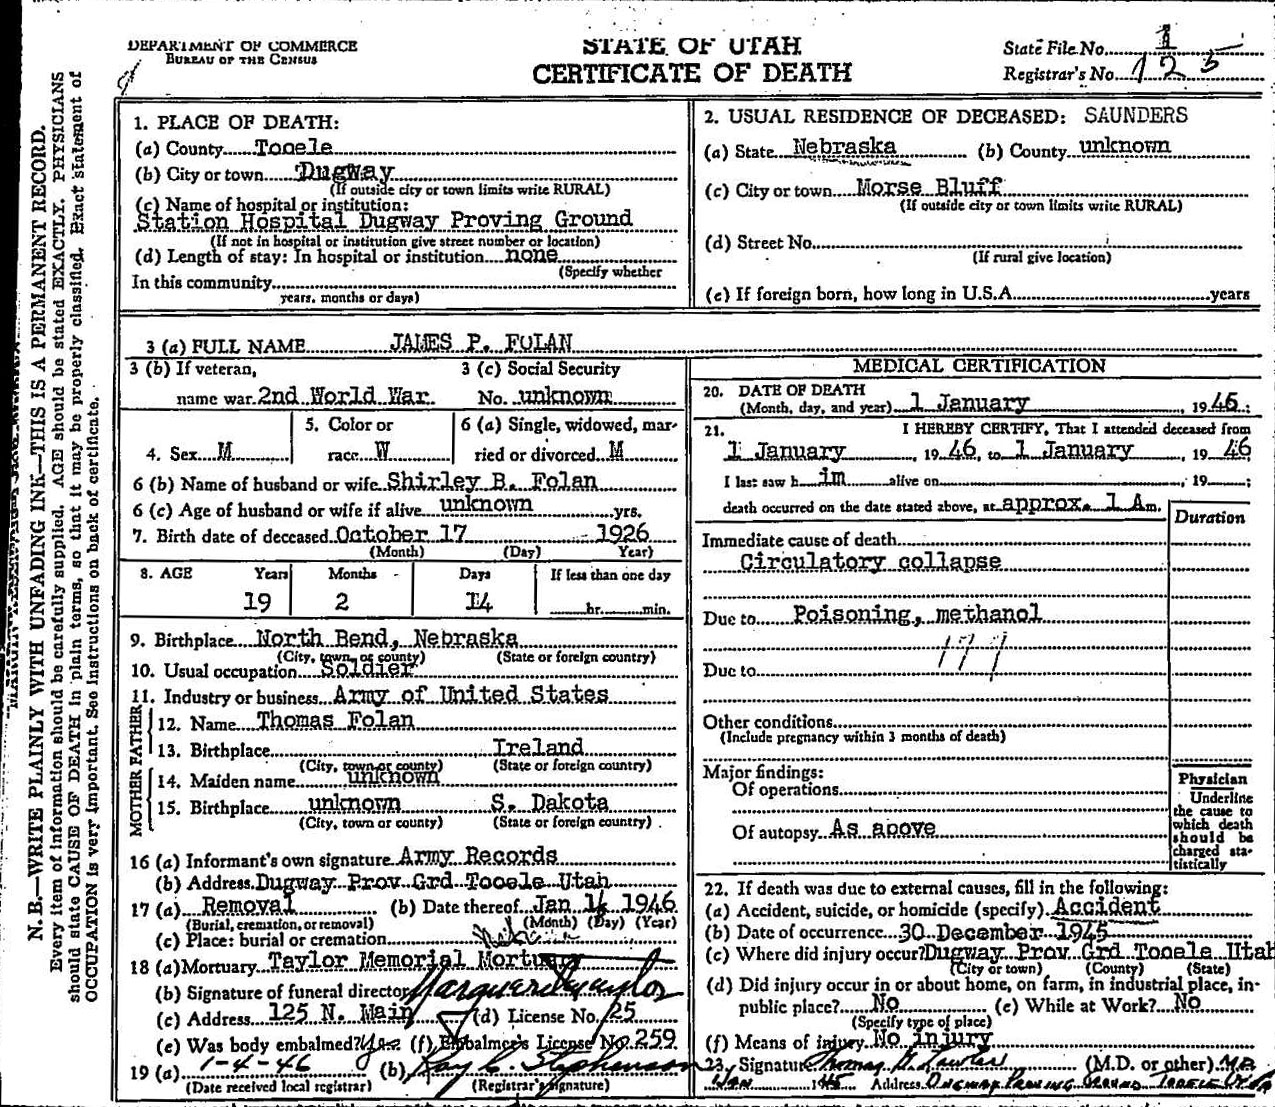 DEPARTMENT OF COMMERCE
BUREAU OF THE CENSUS
STATE OF UTAH
CERTIFICATE OF DEATH
State File No. 1
Registrar's No. 125
N. B.—WRITE PLAINLY WITH UNFADING INK—THIS IS A PERMANENT RECORD.
Every item of information should be carefully supplied. AGE should be stated EXACTLY. PHYSICIANS
should state CAUSE OF DEATH in plain terms, so that it may be properly classified. Exact statement of
OCCUPATION is very important. See instructions on back of certificate.
1. PLACE OF DEATH:
(a) County Tooele
(b) City or town Dugway
(If outside city or town limits write RURAL)
(c) Name of hospital or institution:
Station Hospital Dugway Proving Ground
(If not in hospital or institution give street number or location)
(d) Length of stay: In hospital or institution none
(Specify whether
In this community
years, months or days)
2. USUAL RESIDENCE OF DECEASED: SAUNDERS
(a) State Nebraska (b) County unknown
(c) City or town Morse Bluff
(If outside city or town limits write RURAL)
(d) Street No.
(If rural give location)
(e) If foreign born, how long in U.S.A. years
3 (a) FULL NAME JAMES P. FOLAN
3 (b) If veteran, 3 (c) Social Security
name war 2nd World War No. unknown
4. Sex M
5. Color or
race W
6 (a) Single, widowed, mar-
ried or divorced M
6 (b) Name of husband or wife Shirley B. Folan
6 (c) Age of husband or wife if alive unknown yrs.
7. Birth date of deceased October 17 1926
(Month) (Day) Year)
8. AGE Years Months Days If less than one day
19 2 14 hr. min.
9. Birthplace North Bend, Nebraska
(City, town, or county) (State or foreign country)
10. Usual occupation Soldier
11. Industry or business Army of United States
FATHER
12. Name Thomas Folan
13. Birthplace Ireland
(City, town or county) (State or foreign country)
MOTHER
14. Maiden name unknown
15. Birthplace unknown S. Dakota
(City, town or county) (State or foreign country)
16 (a) Informant's own signature Army Records
(b) Address Dugway Prov Grd Tooele Utah
17 (a) Removal (b) Date thereof Jan 14 1946
(Burial, cremation, or removal) (Month) (Day) (Year)
(c) Place: burial or cremation
18 (a) Mortuary Taylor Memorial Mortuary
(b) Signature of funeral director Marguerite Taylor
(c) Address 125 N. Main (d) License No. 125
(e) Was body embalmed? Yes (f) Embalmer's License No. 259
19 (a) 1-4-46 (b) Ray C. Stephenson
(Date received local registrar) (Registrar's signature)
MEDICAL CERTIFICATION
20. DATE OF DEATH
(Month, day, and year) 1 January, 1946;
21. I HEREBY CERTIFY, That I attended deceased from
1 January, 1946, to 1 January, 1946
I last saw him alive on , 19 ;
death occurred on the date stated above, at approx. 1 Am.
Duration
Immediate cause of death
Circulatory collapse
Due to Poisoning, methanol
179
Due to
Other conditions
(Include pregnancy within 3 months of death)
Major findings:
Of operations
Of autopsy As above
Physician
Underline
the cause to
which death
should be
charged sta-
tistically
22. If death was due to external causes, fill in the following:
(a) Accident, suicide, or homicide (specify) Accident
(b) Date of occurrence 30 December 1945
(c) Where did injury occur? Dugway Prov Grd Tooele Utah
(City or town) (County) (State)
(d) Did injury occur in or about home, on farm, in industrial place, in-
public place? No (e) While at Work? No
(Specify type of place)
(f) Means of injury No injury
23. Signature Thomas (M.D. or other) MD
Jan Address Dugway Proving Ground Tooele Utah